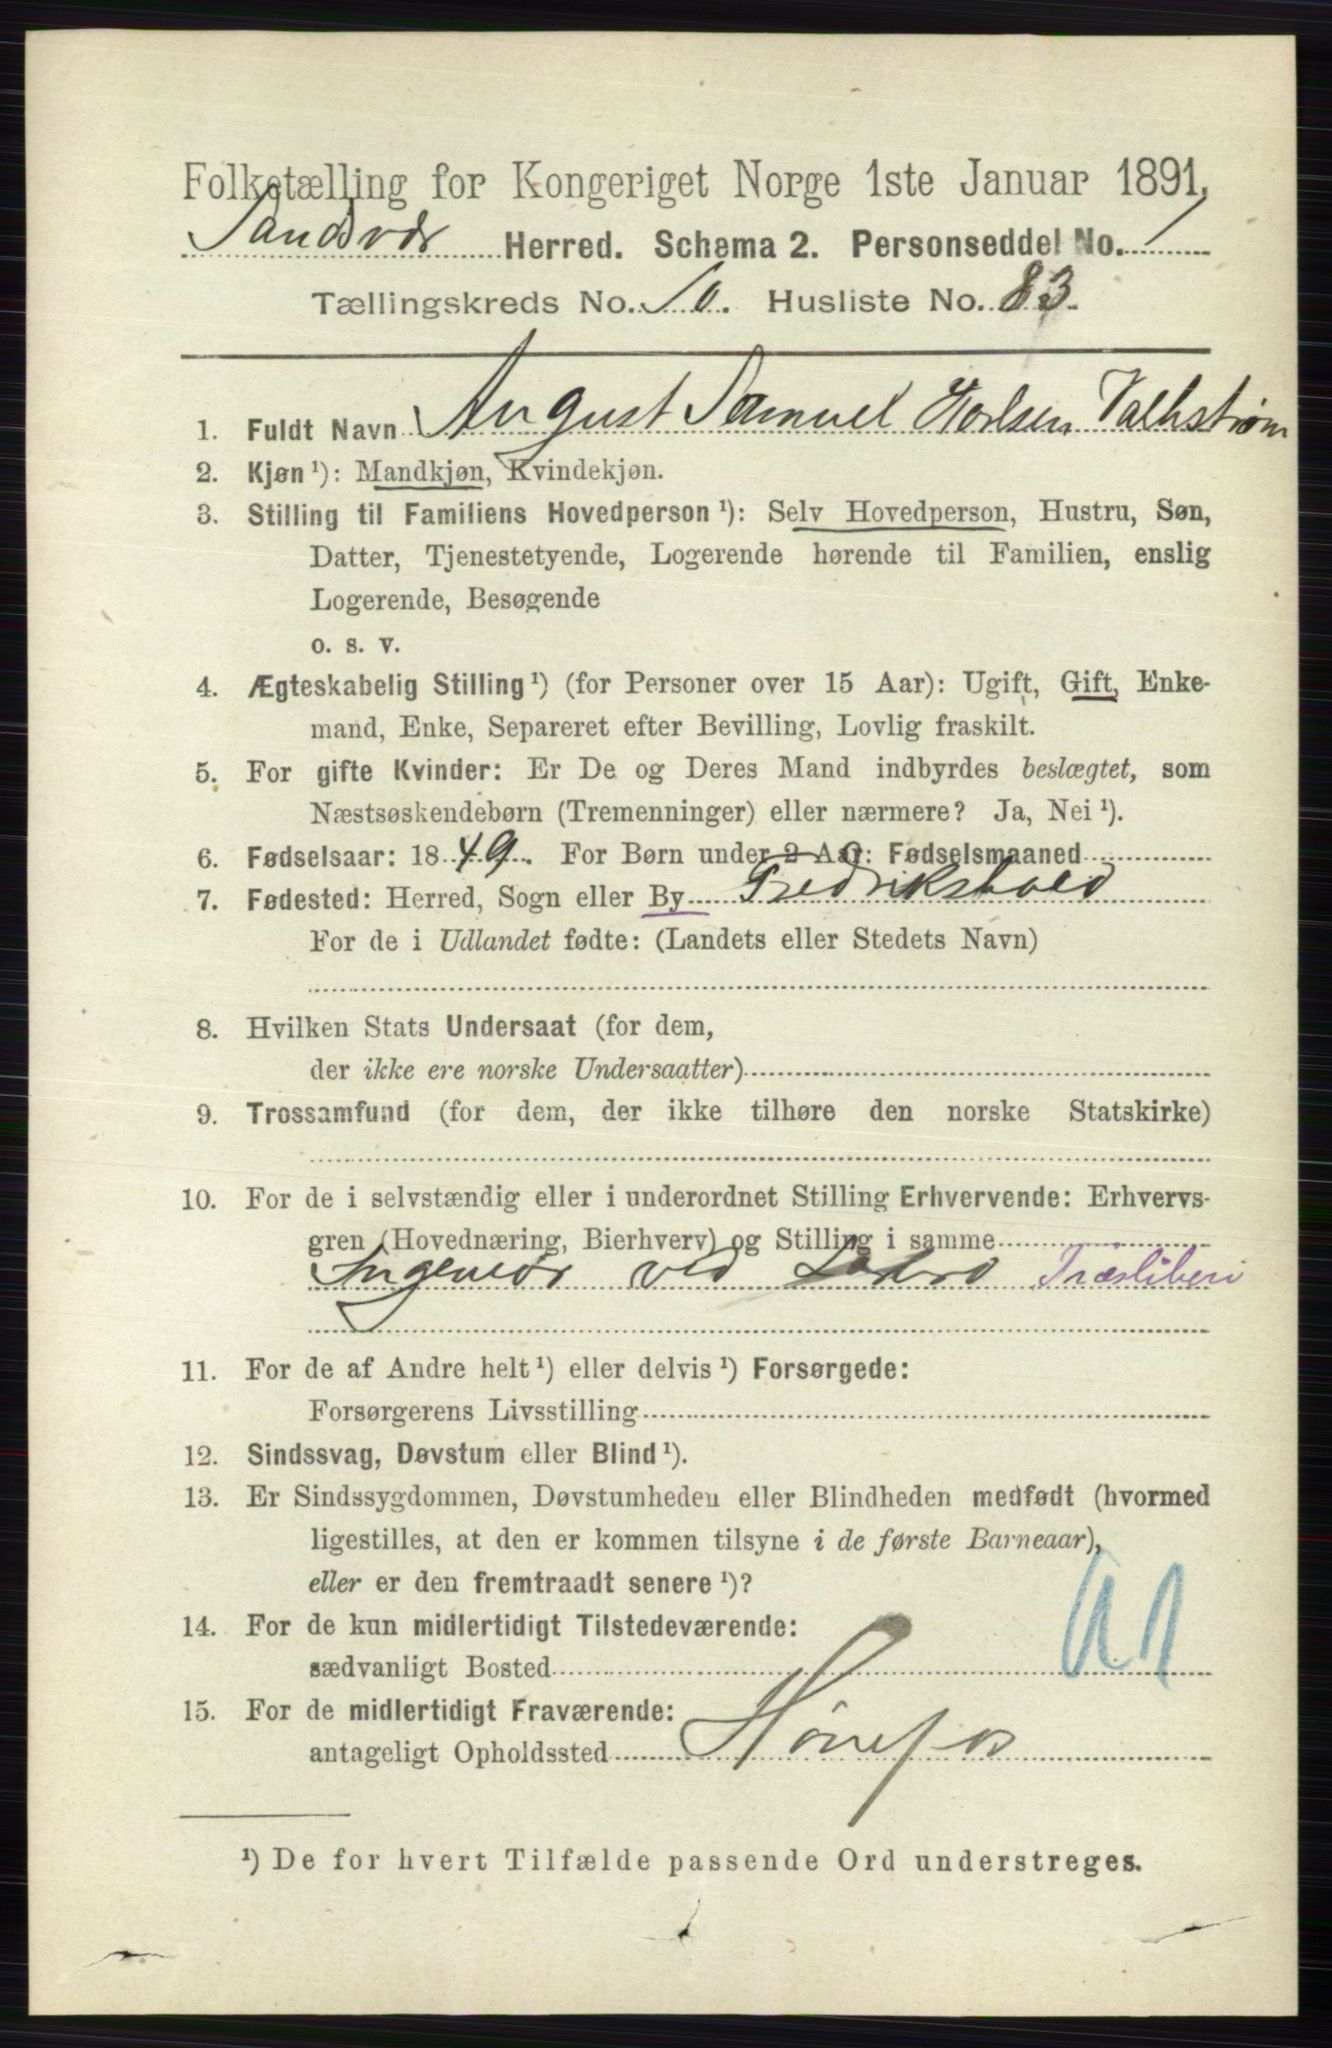 Folketælling for Kongeriget Norge 1ste Januar 1891.
Sandsvær Herred. Schema 2. Personseddel No. 1
Tællingskreds No. 10. Husliste No. 83.
1. Fuldt Navn August Samuel Valkstrøm
2. Kjøn ¹): Mandkjøn, Kvindekjøn.
3. Stilling til Familiens Hovedperson ¹): Selv Hovedperson, Hustru, Søn,
Datter, Tjenestetyende, Logerende hørende til Familien, enslig
Logerende, Besøgende
o. s. v.
4. Ægteskabelig Stilling ¹) (for Personer over 15 Aar): Ugift, Gift, Enke-
mand, Enke, Separeret efter Bevilling, Lovlig fraskilt.
5. For gifte Kvinder: Er De og Deres Mand indbyrdes beslægtet, som
Næstsøskendebørn (Tremenninger) eller nærmere? Ja, Nei ¹).
6. Fødselsaar: 1849. For Børn under 2 Aar: Fødselsmaaned
7. Fødested: Herred, Sogn eller By Fredrikshald
For de i Udlandet fødte: (Landets eller Stedets Navn)
8. Hvilken Stats Undersaat (for dem,
der ikke ere norske Undersaatter)
9. Trossamfund (for dem, der ikke tilhøre den norske Statskirke)
10. For de i selvstændig eller i underordnet Stilling Erhvervende: Erhvervs-
gren (Hovednæring, Bierhverv) og Stilling i samme
Ingeniør ved Træsliberi
11. For de af Andre helt ¹) eller delvis ¹) Forsørgede:
Forsørgerens Livsstilling
12. Sindssvag, Døvstum eller Blind ¹).
13. Er Sindssygdommen, Døvstumheden eller Blindheden medfødt (hvormed
ligestilles, at den er kommen tilsyne i de første Barneaar),
eller er den fremtraadt senere ¹)?
14. For de kun midlertidigt Tilstedeværende:
sædvanligt Bosted
15. For de midlertidigt Fraværende:
antageligt Opholdssted Hønefos
¹) De for hvert Tilfælde passende Ord understreges.